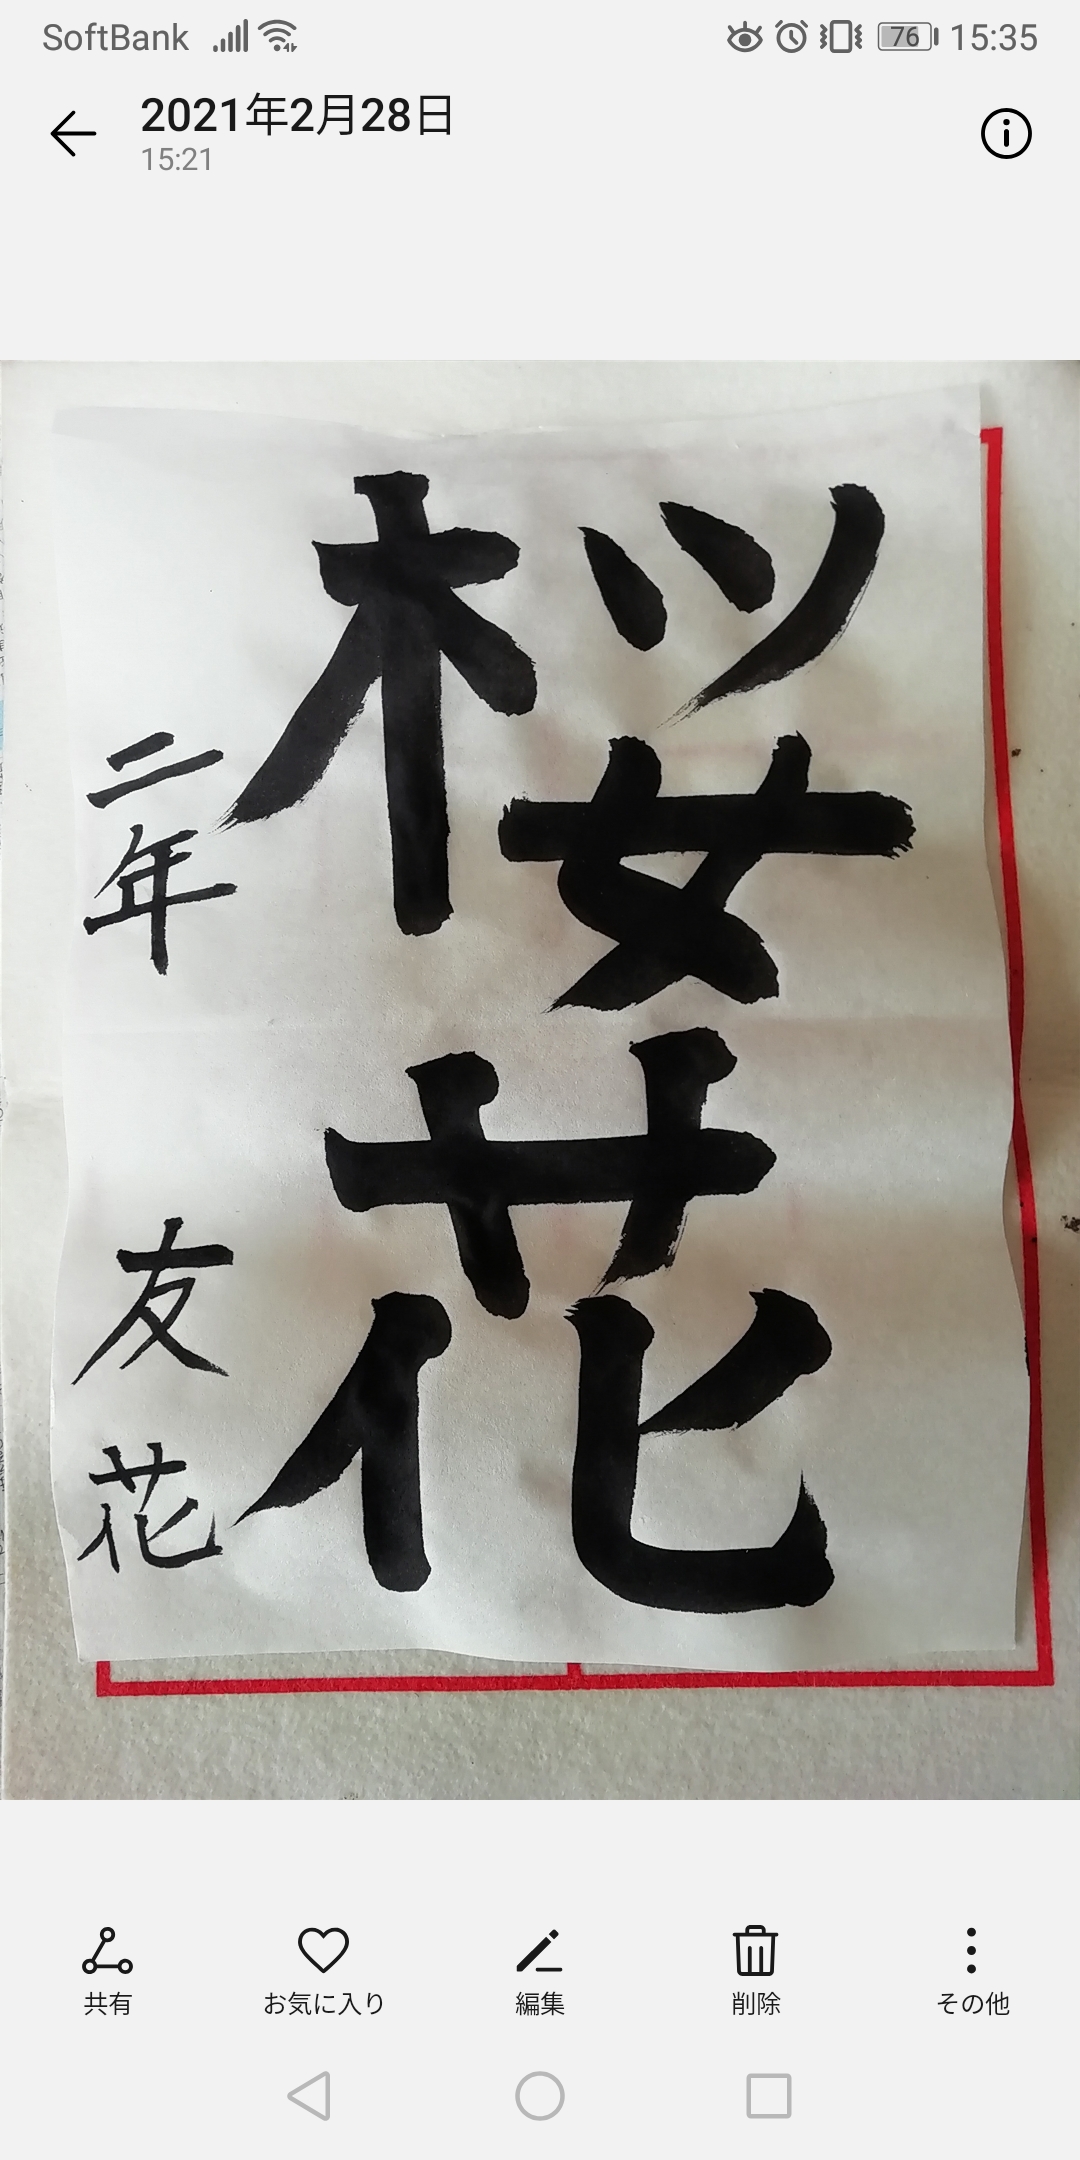 SoftBank 76 15:35
2021年2月28日
15:21
桜花
二年 友花
共有 お気に入り 編集 削除 その他